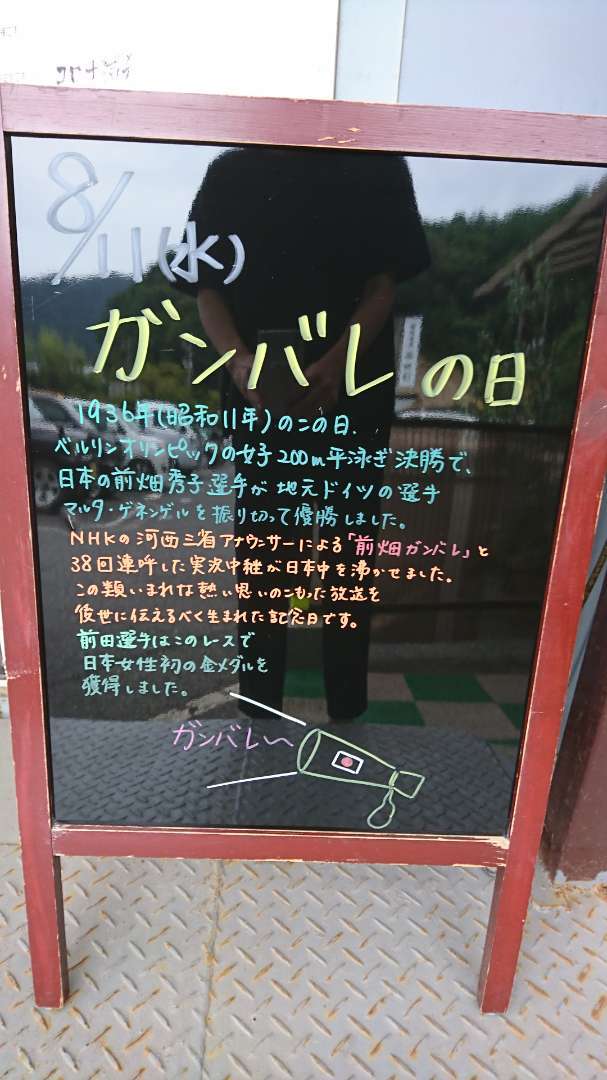 8/11(水)
ガンバレの日
1936年(昭和11年)のこの日、
ベルリンオリンピックの女子200m平泳ぎ決勝で、
日本の前畑秀子選手が地元ドイツの選手
マルタ・ゲネンゲルを振り切って優勝しました。
NHKの河西三省アナウンサーによる「前畑ガンバレ」と
38回連呼した実況中継が日本中を沸かせました。
この類いまれな熱い思いのこもった放送を
後世に伝えるべく生まれた記念日です。
前田選手はこのレースで
日本女性初の金メダルを
獲得しました。
ガンバレ～